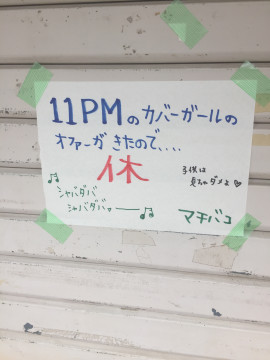 11PMのカバーガールの
オファーがきたので、...
休
子供は
見ちゃダメよ♡
♫
シャバダバ
シャバダバァー――♫
マチバコ